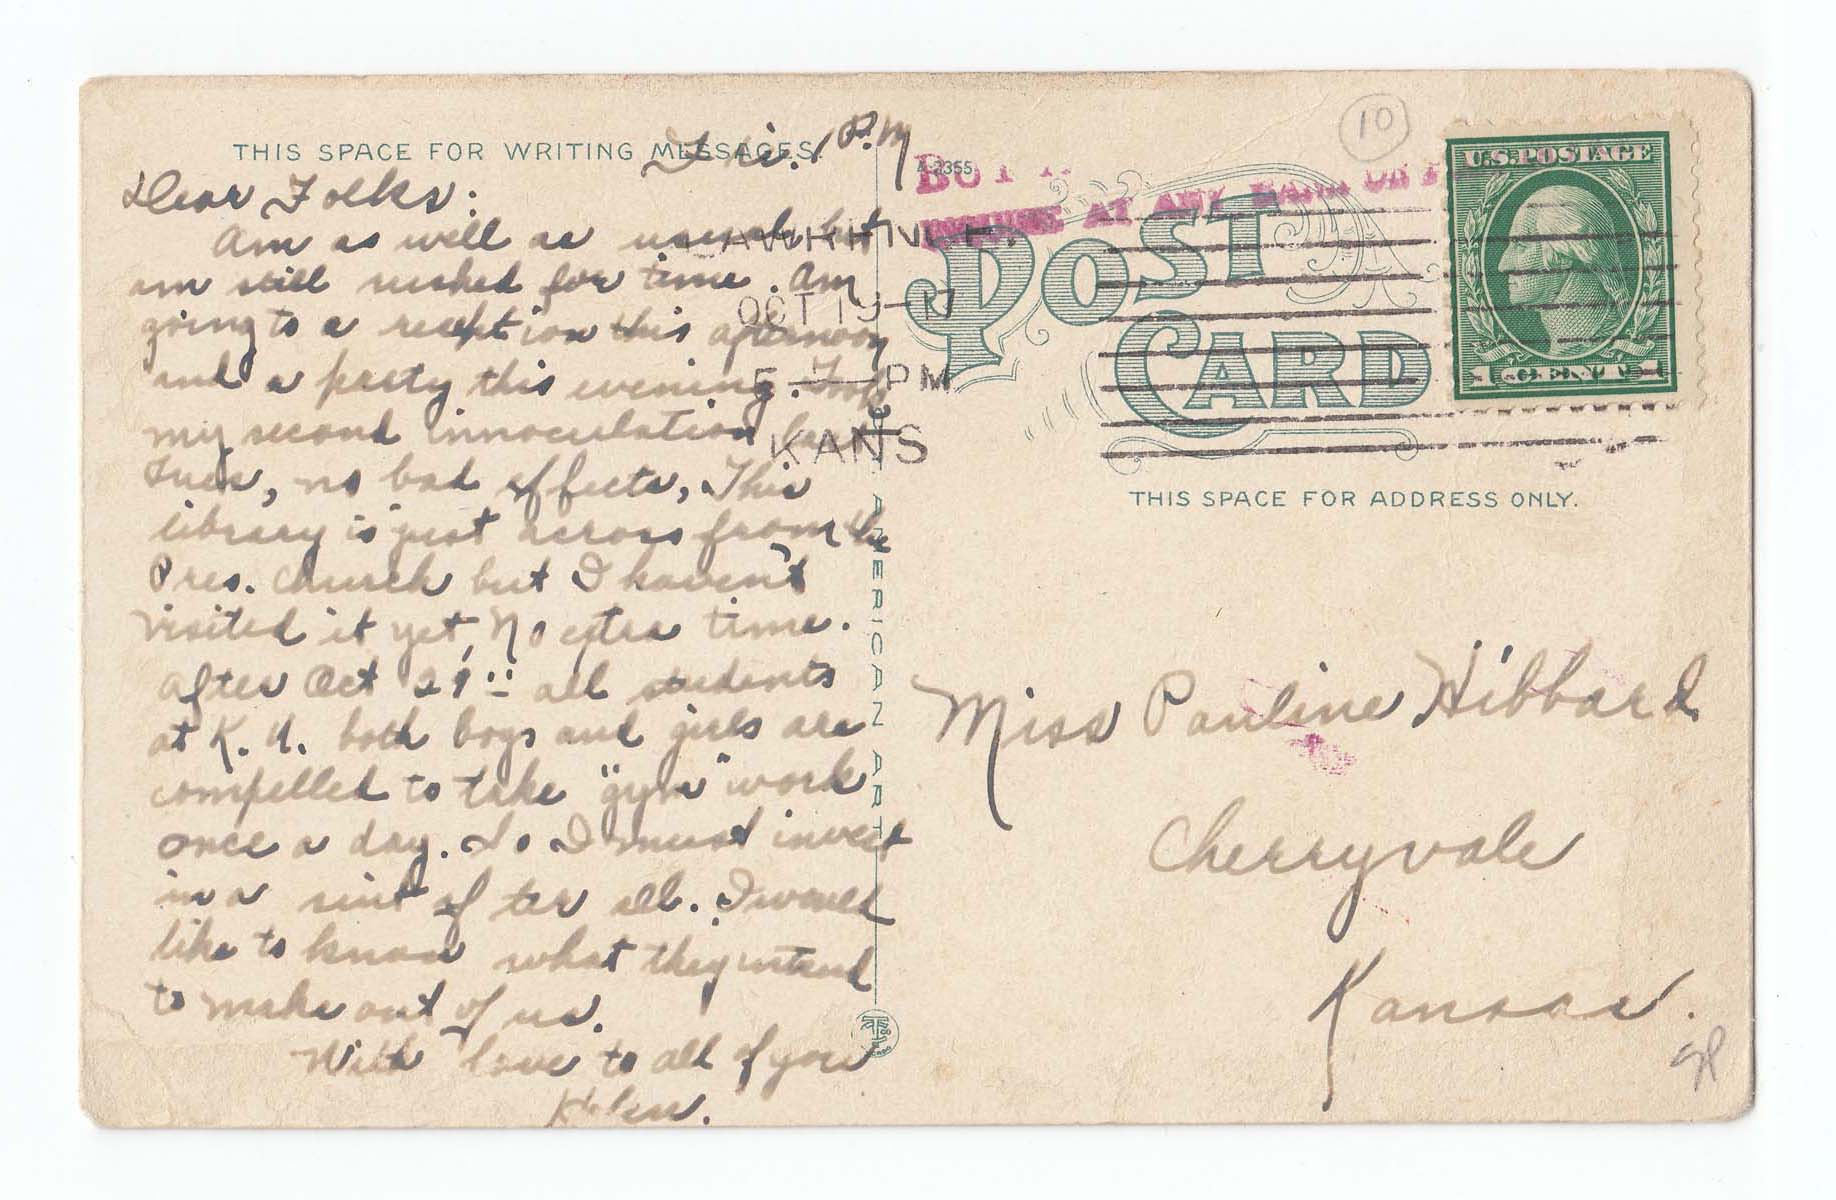 THIS SPACE FOR WRITING MESSAGES.
Fri. 1 P.M
Dear Folks:
Am as well as usual but
am still rushed for time. Am
going to a reception this afternoon
and a party this evening. Took
my second innoculation
Tues, no bad effects, This
library is just across from the
Pres. church but I haven't
visited it yet, No extra time.
After Oct 29th all students
at K. U. both boys and girls are
compelled to take "gym" work
once a day. So I must invest
in a suit after all. I would
like to know what they intend
to make out of us.
With love to all of you
Helen.
AMERICAN ART
A-3355
BUY
AT ANY BANK OR
POST CARD
LAWRENCE.
OCT 19 17
5 - PM
KANS
10
U.S. POSTAGE
1 CENT 1
THIS SPACE FOR ADDRESS ONLY.
Miss Pauline Hibbard
Cherryvale
Kansas.